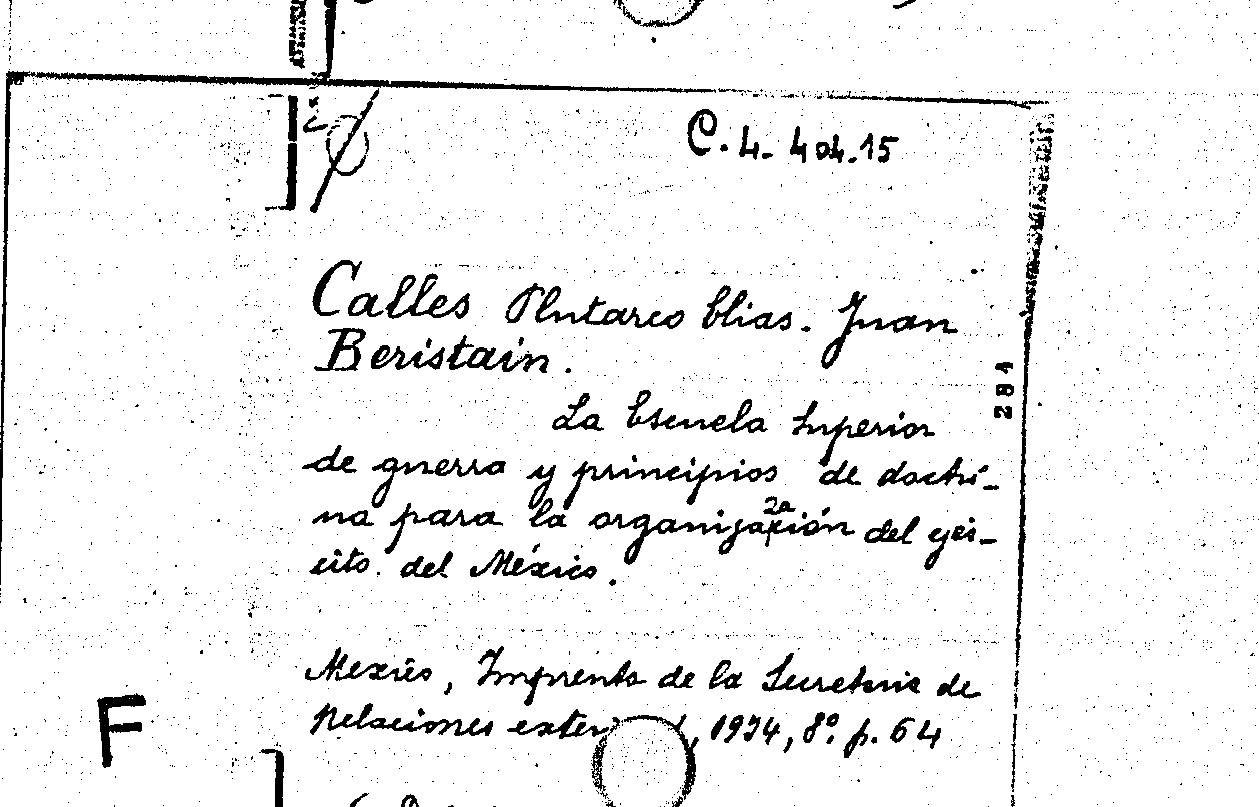 C. 4. 404.15
Calles Plutarco Elias. Juan
Beristain.
284
La Escuela Superior
de guerra y principios de doctri-
na para la organización del ejér-
cito del México.
2a
Mexico, Imprenta de la Secretaria de
Relaciones exter , 1934, 8º. p. 64
F